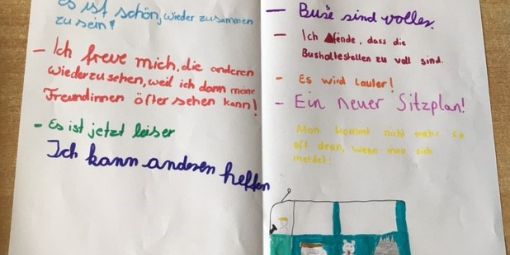 Es ist schön, wieder zusammen
zu sein!
- Ich freue mich, die anderen
wiederzusehen, weil ich dann meine
Freundinnen öfter sehen kann!
- Es ist jetzt leiser
Ich kann anderen helfen
- Buse sind voller.
- Ich fende, dass die
Bushaltestellen zu voll sind.
- Es wird lauter!
- Ein neuer Sitzplan!
Man kommt nicht mehr so
oft dran, wenn man sich
meldet!